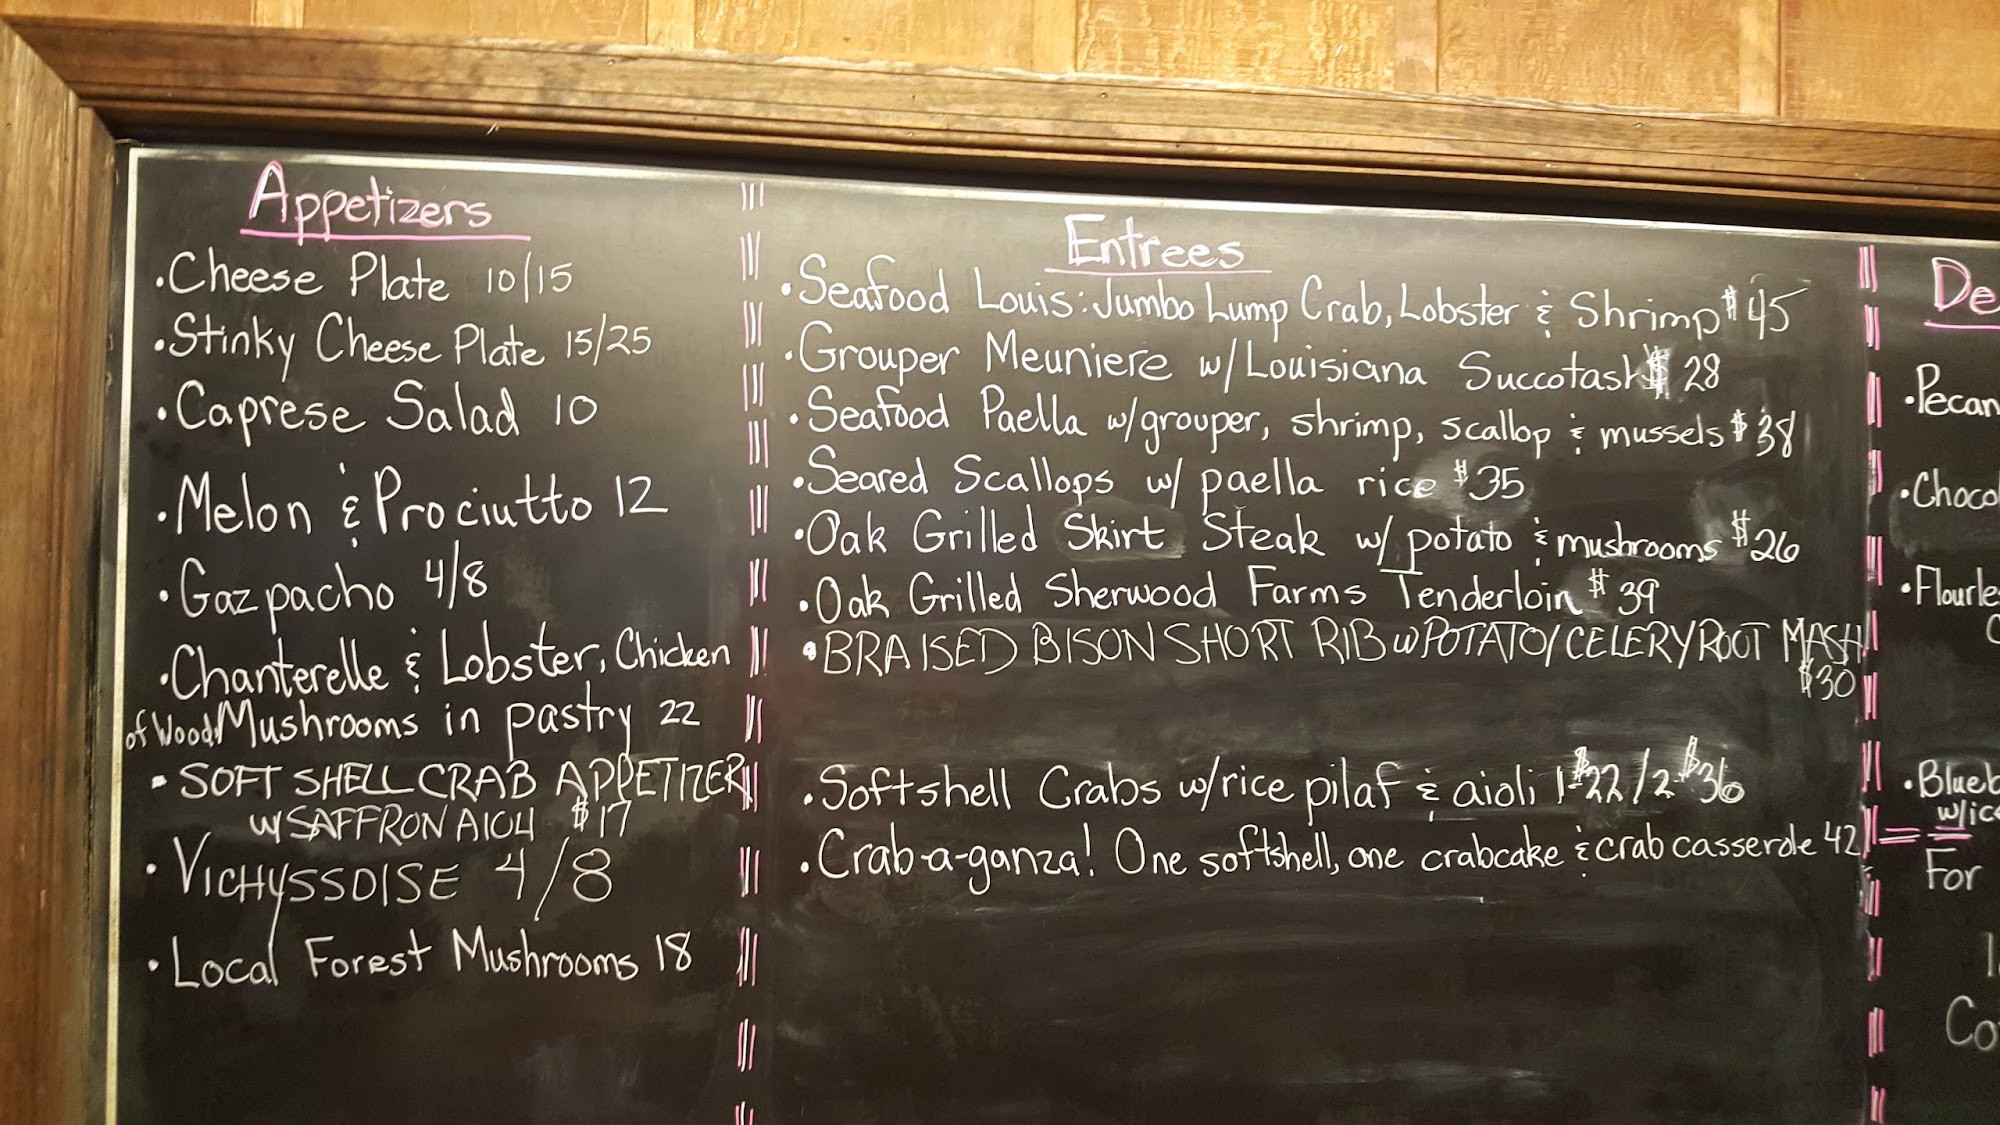 Appetizers
• Cheese Plate 10/15
• Stinky Cheese Plate 15/25
• Caprese Salad 10
• Melon & Prociutto 12
• Gazpacho 4/8
• Chanterelle & Lobster, Chicken
of Woods Mushrooms in pastry 22
• SOFT SHELL CRAB APPETIZER
w/ SAFFRON AIOLI $17
• VICHYSSOISE 4/8
• Local Forest Mushrooms 18
Entrees
• Seafood Louis: Jumbo Lump Crab, Lobster & Shrimp $45
• Grouper Meuniere w/ Louisiana Succotash $28
• Seafood Paella w/ grouper, shrimp, scallop & mussels $38
• Seared Scallops w/ paella rice $35
• Oak Grilled Skirt Steak w/ potato & mushrooms $26
• Oak Grilled Sherwood Farms Tenderloin $39
• BRAISED BISON SHORT RIB w POTATO/CELERY ROOT MASH
$30
• Softshell Crabs w/ rice pilaf & aioli 1-$22/2-$36
• Crab-a-ganza! One softshell, one crabcake & crab casserole 42
De
• Pecan
• Chocol
• Flourles
• Blueb
w/ice
For
Co